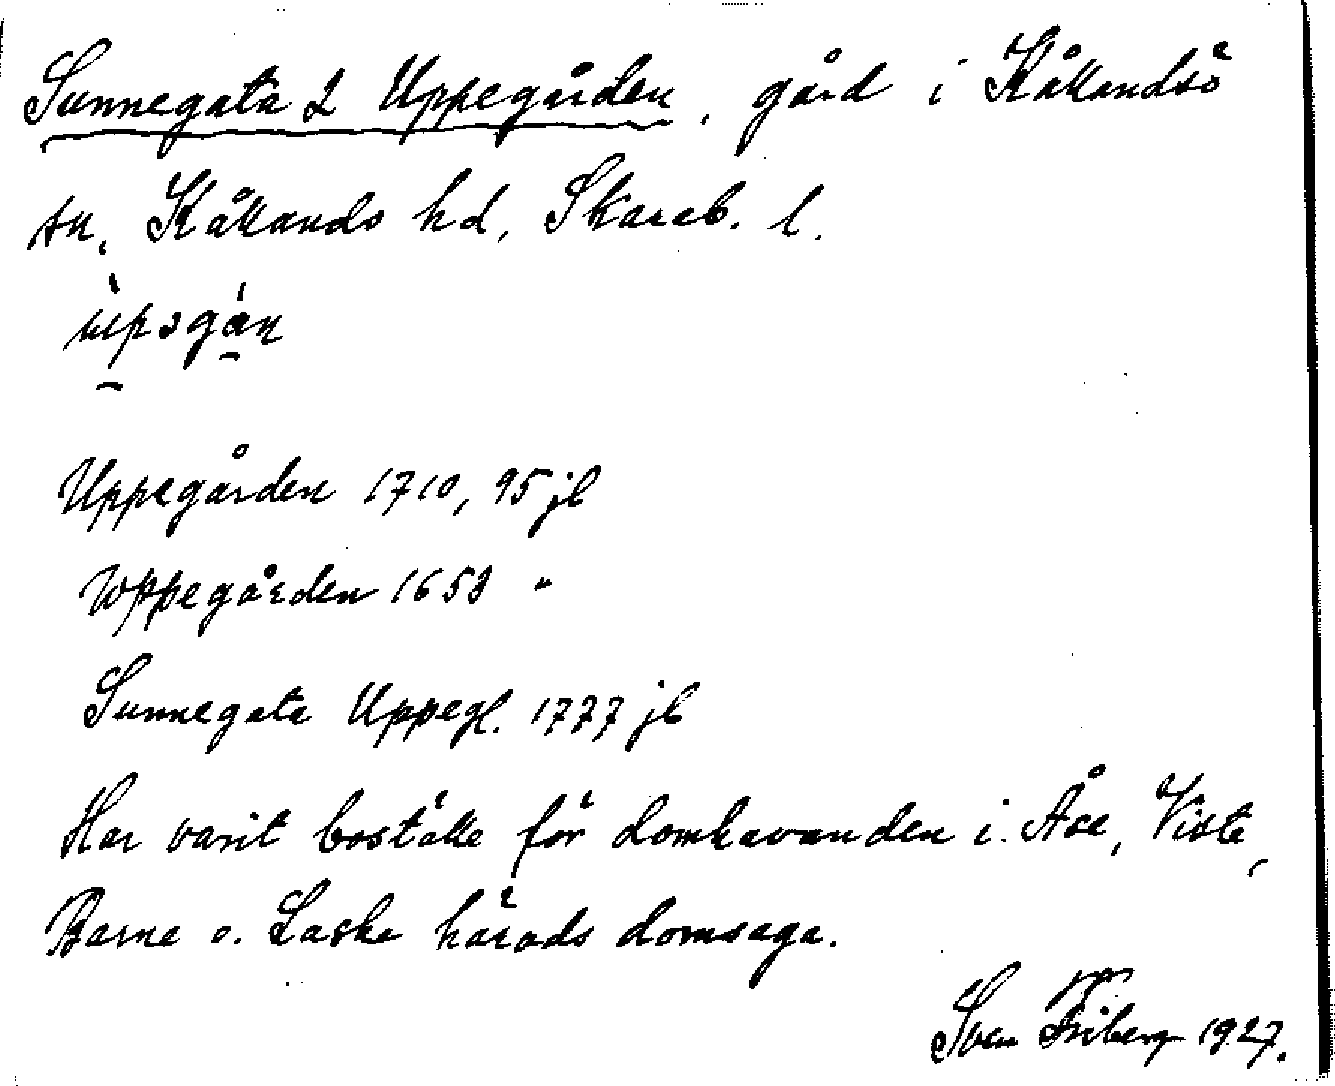 Sunnegata 2 Uppegården, gård i Kållandsö
sn, Kållands hd, Skarab. l.
Uppegården 1710, 95 jb
Wppegården 1653 "
Sunnegata Uppeg. 1777 jb
Har varit boställe för domhavanden i Åse, Viste,
Barne o. Laske härads domsaga.
Sven Friberg 1927.